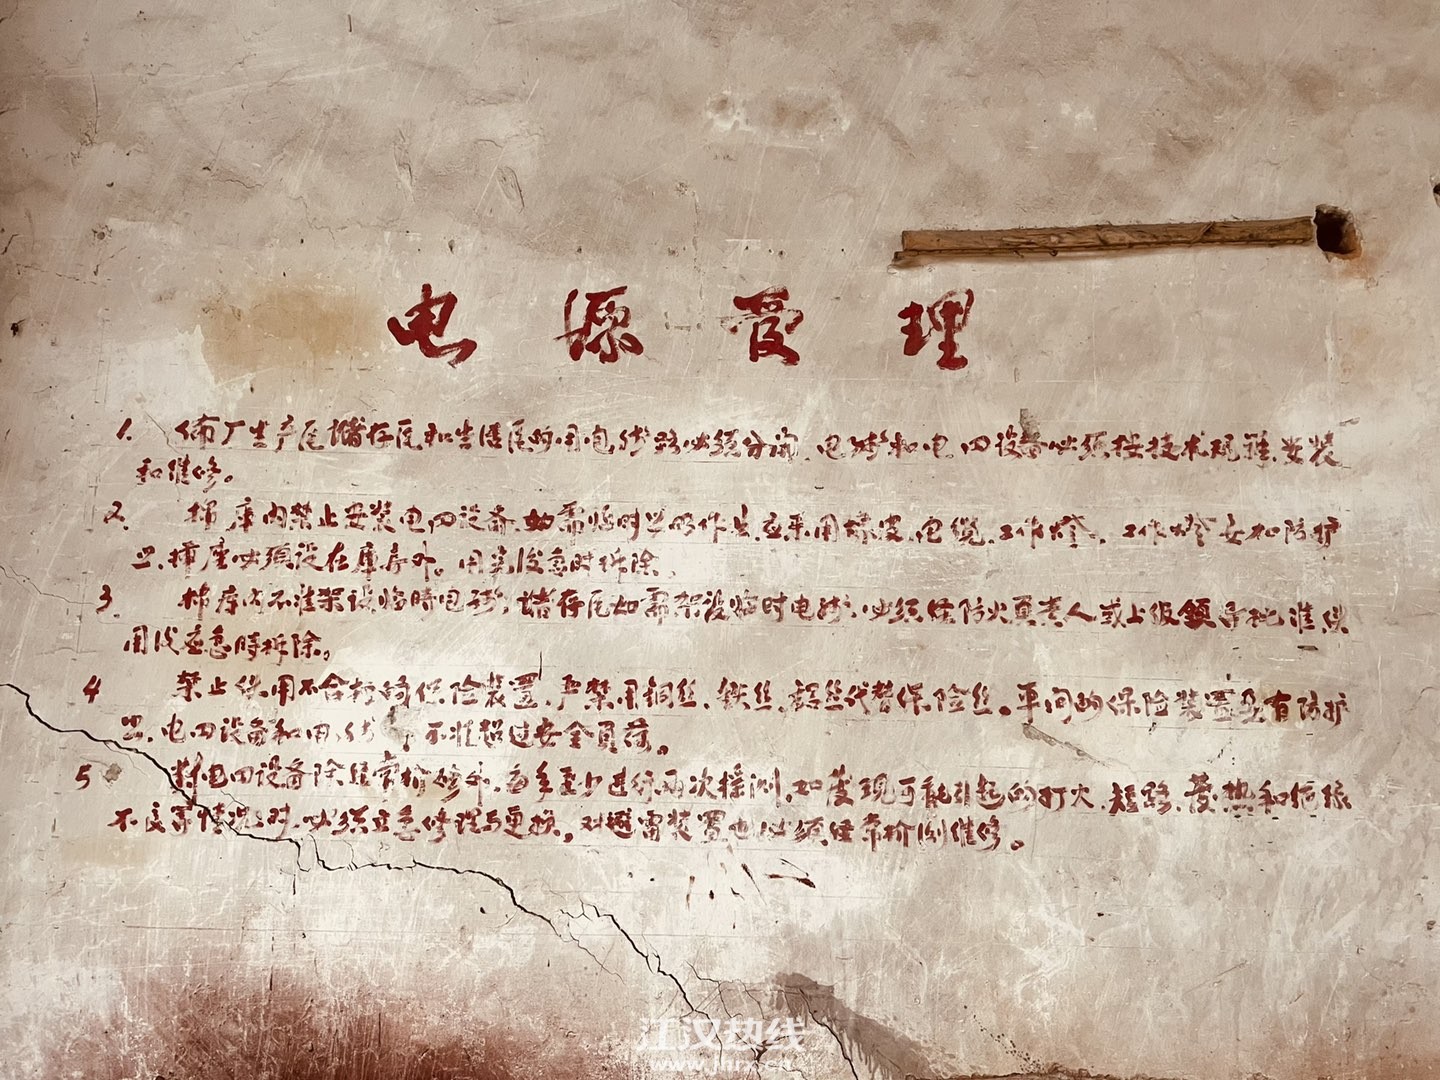 电源受理
1. 厂生产区储存区和生活区的用电线路必须分开,电线和电四设备必须按技术规程安装
和维修。
2. 棉库内禁止安装电四设备,如需临时 作 应采用橡皮电缆,工作灯,工作灯会安和防护
四,插座必须设在库房外。用完后急时拆除。
3 棉库内不准架设临时电线,储存区如需架设临时电线,必须经防火负责人或上级领导批准,使
用后应急時拆除。
4 禁止使用不合格的保险装置,严禁用铜丝、铁丝、铝丝代替保险丝。车间的保险装置要有防护
四,电四设备和用 不准超过安全负荷。
5 对电四设备除经常检修外,每年至少进行两次摇测,如发现可能引起的打火、短路、发热和绝缘
不良等情况时,必须立急修理与更换。对避雷装置也必须经常检测维修。
江汉热线
www.jhrx.cn